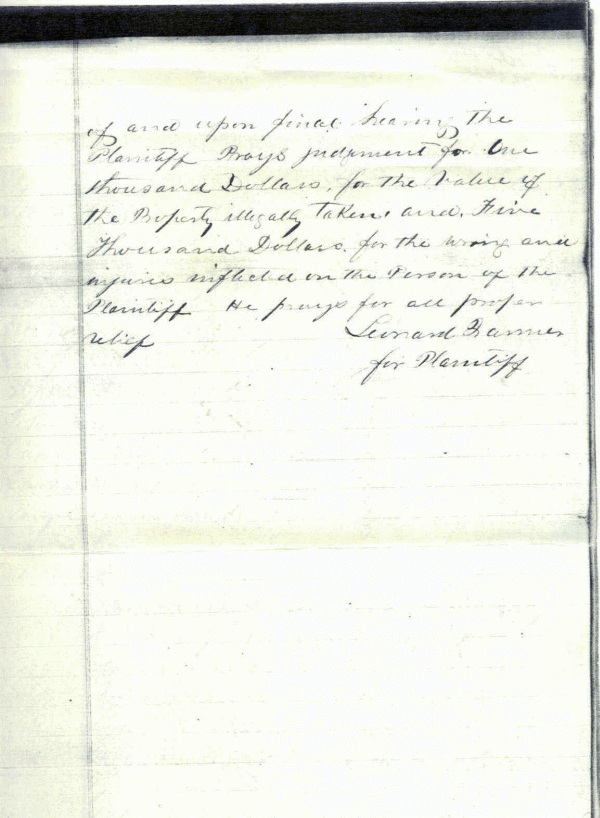 of and upon final hearing the
Plaintiff Prays judgment for One
thousand Dollars, for the Value of
the Property illegally taken, and, Five
Thousand Dollars. for the wrong and
injuries inflicted on the Person of the
Plaintiff He prays for all proper
relief Leonard
for Plaintiff